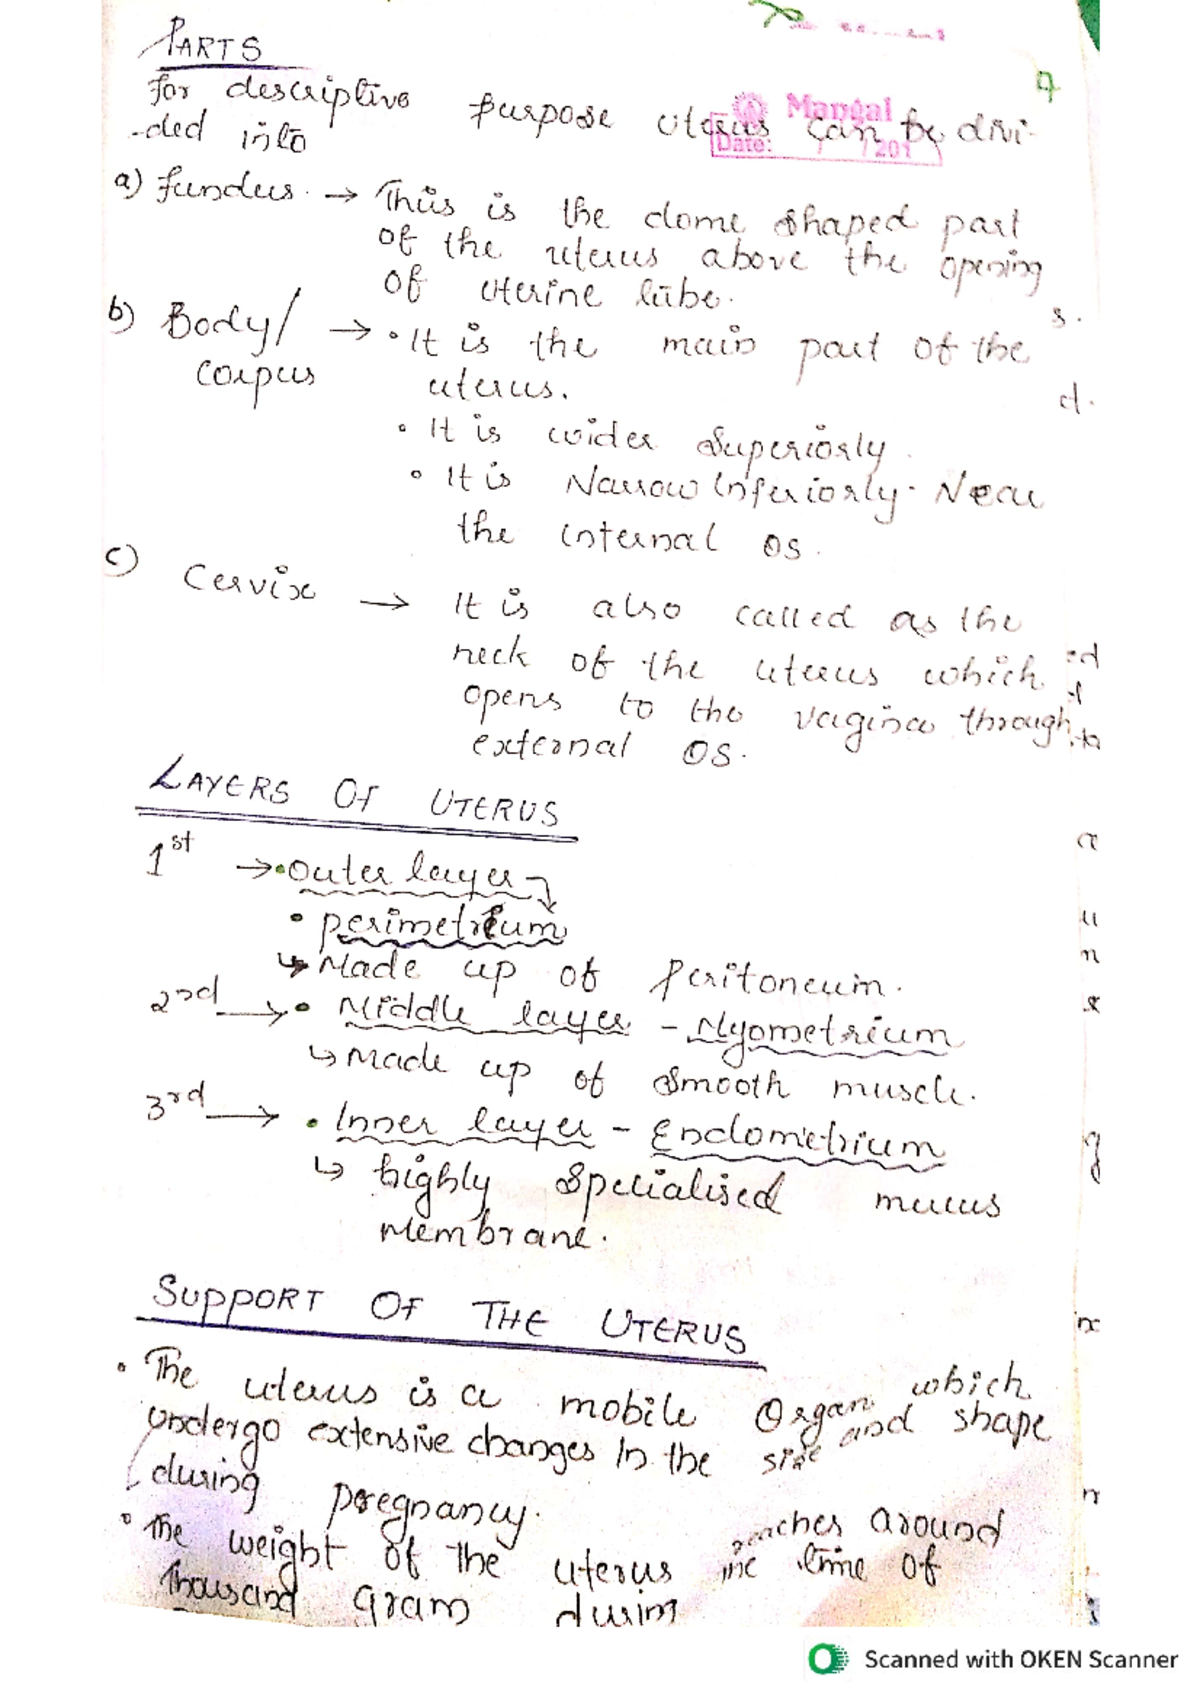 PARTS
7
for descriptive purpose uterus can be divi-
-ded into
Mangal
Date: / /201
a) fundus. → This is the dome shaped part
of the uterus above the opening
of uterine tube.
b) Body/ → • It is the main part of the
corpus uterus.
• It is wider superiorly.
• It is Narrow inferiorly. Near
the internal os.
c) Cervix → It is also called as the
neck of the uterus which
opens to the vagina through
external os.
LAYERS OF UTERUS
1st → • outer layer
• perimetrium
↳ Made up of Peritoneum.
2nd → • Middle layer - Myometrium
↳ Made up of smooth muscle.
3rd → • Inner layer - Endometrium
↳ highly specialised mucus
membrane.
SUPPORT OF THE UTERUS
• The uterus is a mobile organ which
undergo extensive changes in the size and shape
during pregnancy.
• The weight of the uterus reaches around
thousand gram time of
Scanned with OKEN Scanner